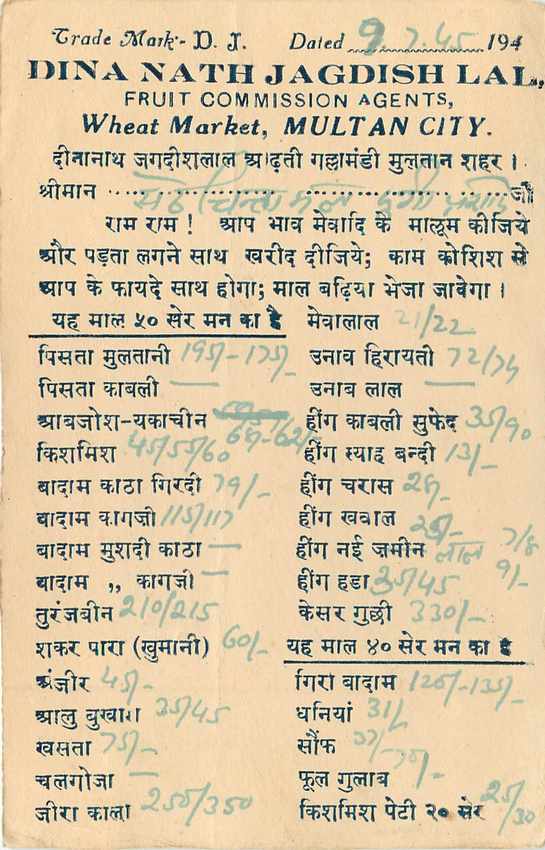 Trade Mark:- D. J. Dated 9.7.45 194
DINA NATH JAGDISH LAL,
FRUIT COMMISSION AGENTS,
Wheat Market, MULTAN CITY.
दीनानाथ जगदीशलाल आढ़ती गल्लामंडी मुलतान शहर ।
श्रीमान सेठ जी
राम राम ! आप भाव मेवादि के मालूम कीजिये
और पड़ता लगने साथ खरीद दीजिये; काम कोशिश से
आप के फायदे साथ होगा; माल बढ़िया भेजा जावेगा ।
यह माल ५० सेर मन का है
पिसता मुलतानी 195)-175)
पिसता काबली —
आबजोश-यकाचीन
किशमिश 45/55/60
बादाम काठा गिरदी 79/-
बादाम कागजी 115/117
बादाम मुशदी काठा —
बादाम ,, कागजी —
तुरंजबीन 210/215
शकर पारा (खुमानी) 60/-
अंजीर 45)-
आलु बुखारा 35/45
खसता 75)-
चलगोजा —
जीरा काला 250/350
मेवालाल 21/22
उनाव हिरायती 72/74
उनाब लाल —
हींग काबली सुफेद 35/90
हींग स्याह बन्दी 13/-
हींग चरास
हींग खवाल
हींग नई जमीन लाल 7/8
हींग हडा 35/45 9/-
केसर गुछी 330/-
यह माल ४० सेर मन का है
गिरा बादाम
धनियां 31/
सौंफ
फूल गुलाब
किशमिश पेटी २० सेर 25/30